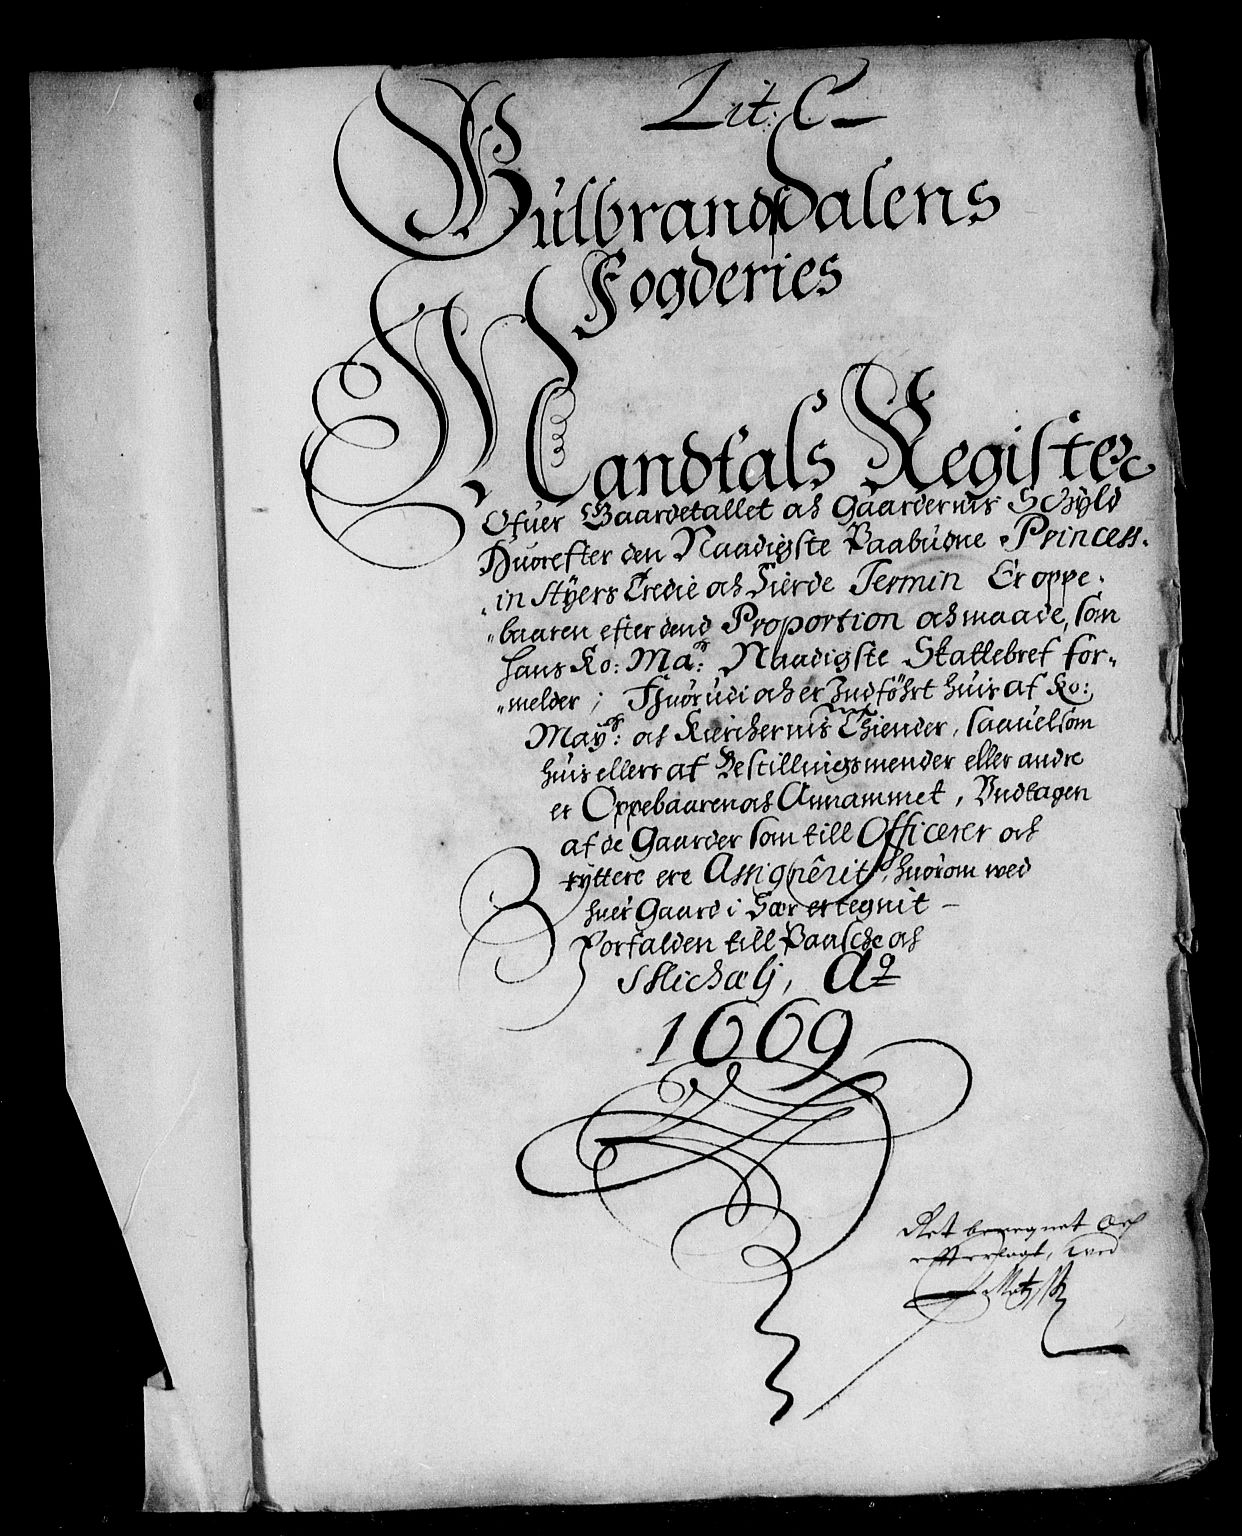 Lit: C
Gulbrandsdalens
Fogderies
Mandtals Register
Ofuer Gaardetallet och Gaardernis Schyld
Huorefter den Naadigste Paabudne Princess-
in Styers Tredie och Fierde Termin Er oppe-
baaren efter dend Proportion och maade, som
hans Ko: Ma:ts Naadigste Skattebref for-
melder; Huorudi och er Indføhrt huis af Ko:
May:ts och Kierchernis Thiender, saauelsom
huis ellers af Bestillingsmender eller andre
er Oppebaaren och Annammet, Undtagen
af de Gaarder som till Officerer och
ryttere ere Assignêrit, huorom ved
huer Gaard i Sær ertegnit
Forfalden till Paasche och
Michaelj, Ao
1669
Ret beregnet Och
efterlagt, wed